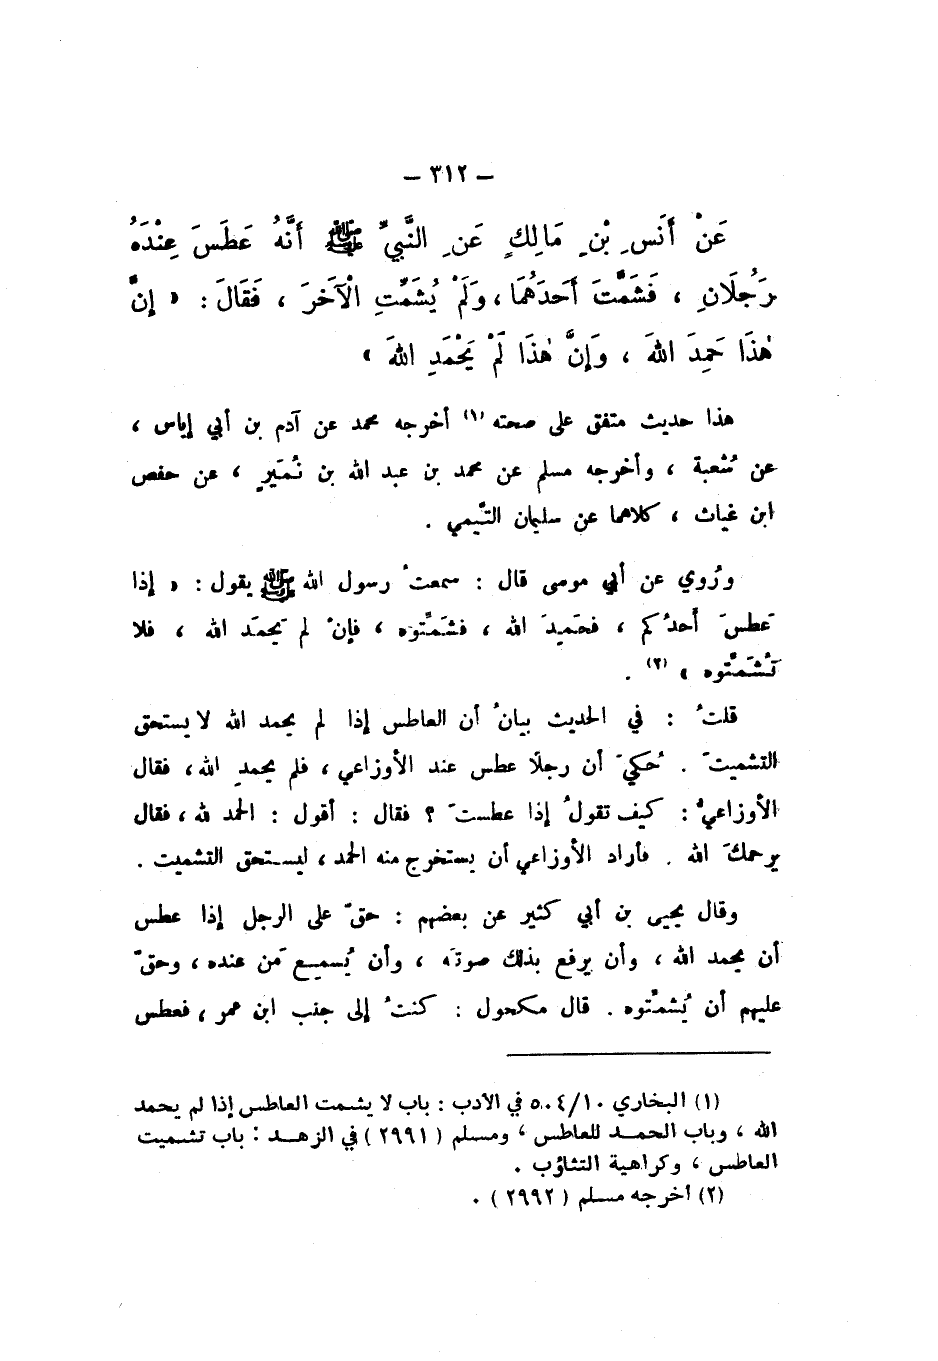 – ٣١٢ –
عَنْ أَنَسِ بْنِ مَالِكٍ عَنِ النَّبيِّ ﷺ أَنَّهُ عَطَسَ عِنْدَهُ
رَجُلَانِ ، فَشَمَّتَ أَحَدَهُمَا ، وَلَمْ يُشَمِّتِ الْآخَرَ ، فَقَالَ : « إنَّ
هٰذَا حَمِدَ اللهَ ، وَإِنَّ هٰذَا لَمْ يَحْمَدِ اللهَ »
هذا حديث متفق على صحته (١) أخرجه محمد عن آدم بن أبي إياس ،
عن شُعبة ، وأخرجه مسلم عن محمد بن عبد الله بن نُمَيرٍ ، عن حفص
ابن غياث ، كلاهما عن سليمان التَّيمي .
ورُوي عن أبي موسى قال : سمعتُ رسول الله ﷺ يقول : « إذا
عَطسَ أحدُكم ، فحَمِيدَ الله ، فشَمِّتوه ، فإنْ لم يَحمَد الله ، فلا
تُشَمِّتوه » (٢) .
قلتُ : في الحديث بيانُ أن العاطس إذا لم يحمد الله لا يستحق
التشميتَ . حُكيَ أن رجلًا عطس عند الأوزاعي ، فلم يحمدِ الله ، فقال
الأوزاعيُّ : كيف تقولُ إذا عطستَ ؟ فقال : أقول : الحمد لله ، فقال
يرحمكَ الله . فأراد الأوزاعي أن يستخرج منه الحمد ، ليستحق التشميت .
وقال يحيى بن أبي كثير عن بعضهم : حقّ على الرجل إذا عطس
أن يحمد الله ، وأن يرفع بذلك صوتَه ، وأن يُسميع مَن عنده ، وحقّ
عليهم أن يُشمِّتوه . قال مكحول : كنتُ إلى جنب ابن عمر ، فعطس
(١) البخاري ٥٠٤/١٠ في الادب : باب لا يشمت العاطس إذا لم يحمد
الله ، وباب الحمد للعاطس ، ومسلم ( ٢٩٩١ ) في الزهد : باب تشميت
العاطس ، وكراهية التثاؤب .
(٢) أخرجه مسلم ( ٢٩٩٢ ) .